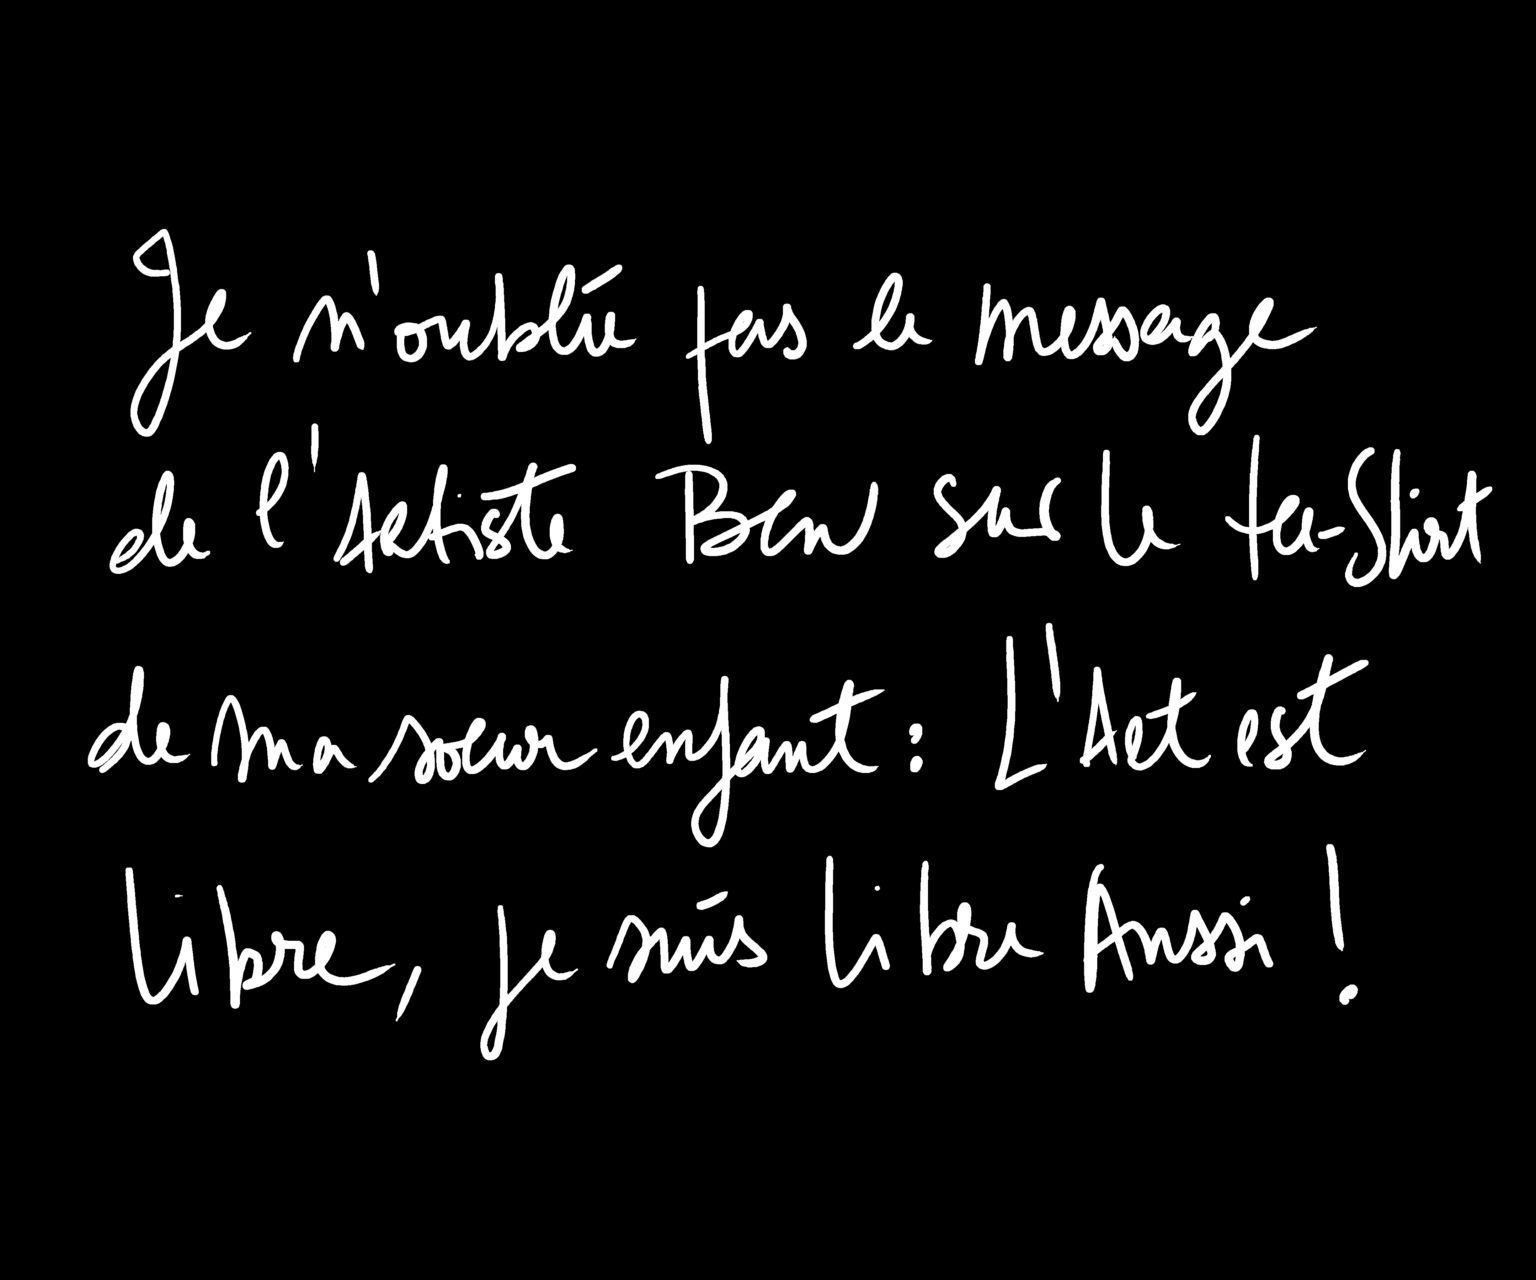 Je n'oublie pas le message
de l'Artiste Ben sur le tee-Shirt
de ma soeur enfant : L'Art est
libre, je suis libre Aussi !